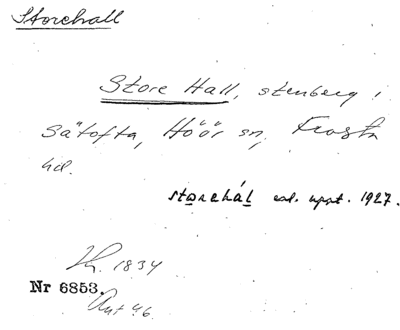 Storehall
Store Hall, stenberg i
Sätofta, Höör sn, Frosta
hd.
storehál enl. uppt. 1927.
1834
Nr 6853.